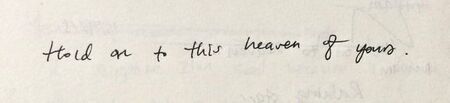 Hold on to this heaven of yours.